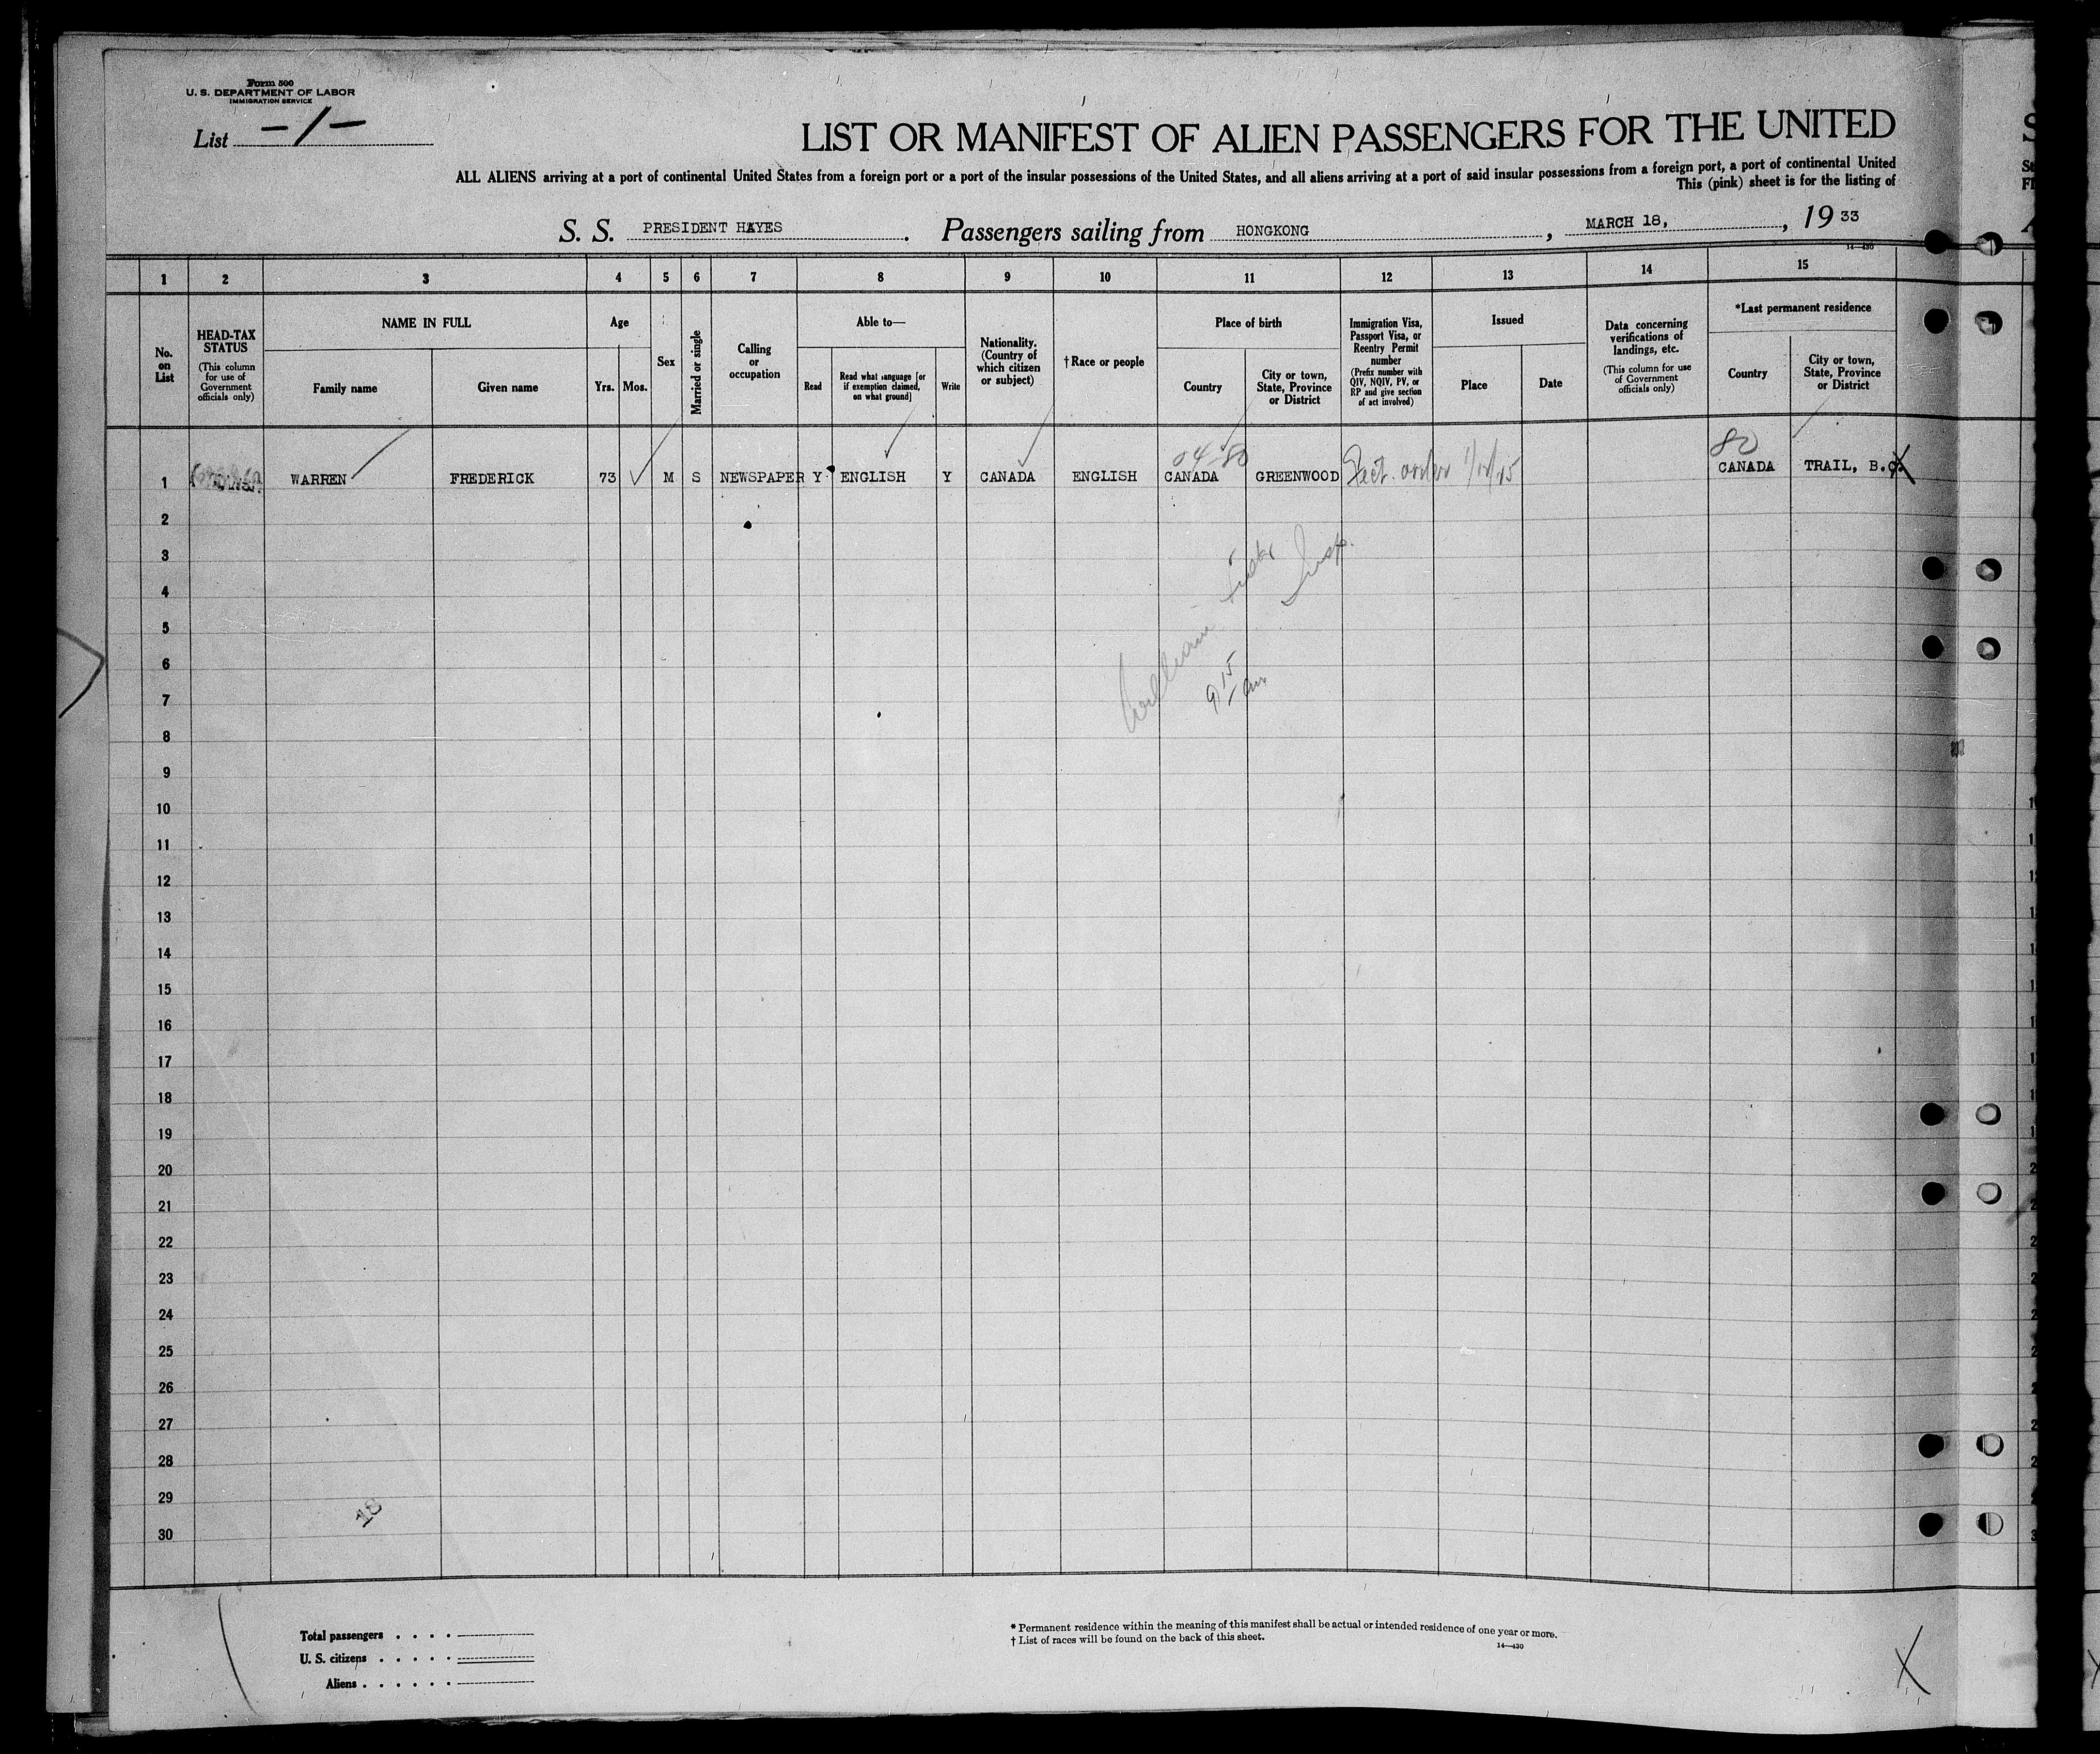 Form 500
U. S. DEPARTMENT OF LABOR
IMMIGRATION SERVICE
List -1-
LIST OR MANIFEST OF ALIEN PASSENGERS FOR THE UNITED
ALL ALIENS arriving at a port of continental United States from a foreign port or a port of the insular possessions of the United States, and all aliens arriving at a port of said insular possessions from a foreign port, a port of continental United
This (pink) sheet is for the listing of
S. S. PRESIDENT HAYES. Passengers sailing from HONGKONG, MARCH 18, , 19 33
14—430
1 2 3 4 5 6 7 8 9 10 11 12 13 14 15
No. on List
HEAD-TAX STATUS
(This column for use of Government officials only)
NAME IN FULL
Family name
Given name
Age
Yrs.
Mos.
Sex
Married or single
Calling or occupation
Able to—
Read
Read what language [or if exemption claimed, on what ground]
Write
Nationality. (Country of which citizen or subject)
† Race or people
Place of birth
Country
City or town, State, Province or District
Immigration Visa, Passport Visa, or Reentry Permit number
(Prefix number with QIV, NQIV, PV, or RP and give section of act involved)
Issued
Place
Date
Data concerning verifications of landings, etc.
(This column for use of Government officials only)
*Last permanent residence
Country
City or town, State, Province or District
04-80
80
1 WARREN FREDERICK 73 M S NEWSPAPER Y ENGLISH Y CANADA ENGLISH CANADA GREENWOOD CANADA TRAIL, B.C.
2
3
4
5
6
7
8
9
10
11
12
13
14
15
16
17
18
19
20
21
22
23
24
25
26
27
28
29
30
William
Insp.
9 15 am
18
Total passengers . . . .
U. S. citizens . . . . .
Aliens . . . . . .
* Permanent residence within the meaning of this manifest shall be actual or intended residence of one year or more.
† List of races will be found on the back of this sheet.
14—430